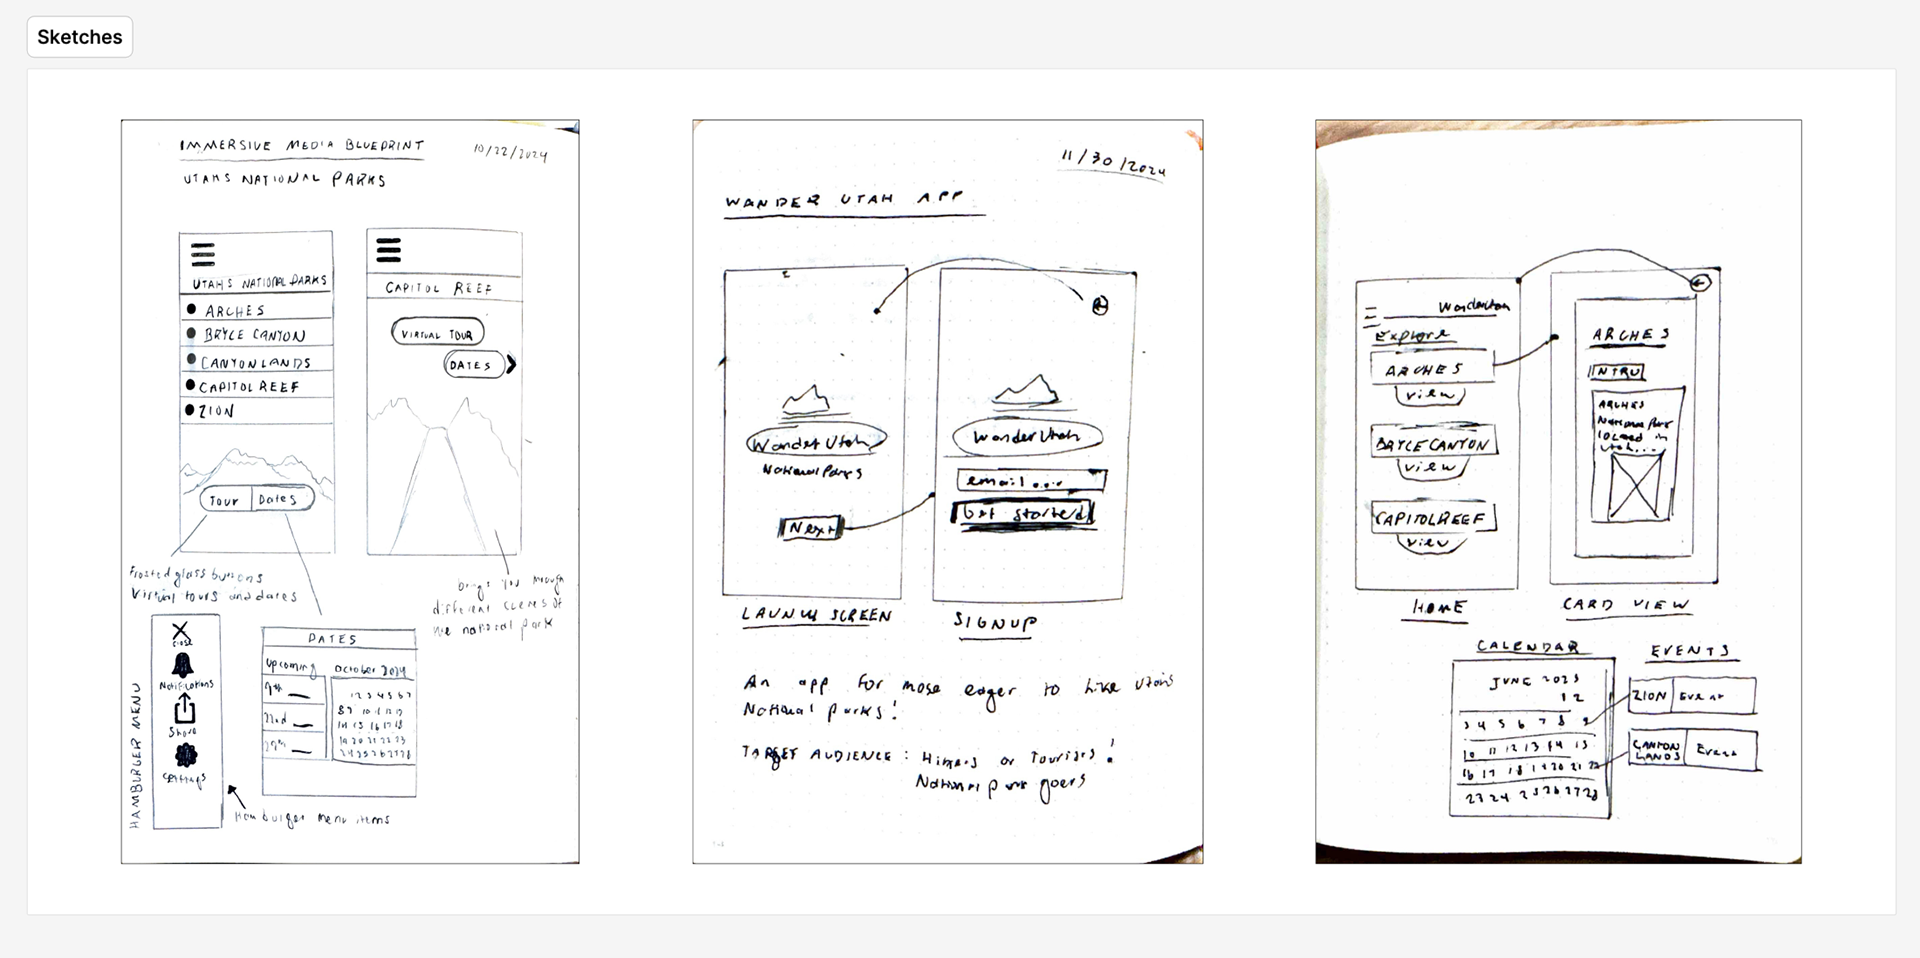 Sketches
IMMERSIVE MEDIA BLUEPRINT
10/22/2024
UTAHS NATIONAL PARKS
UTAHS NATIONAL PARKS
ARCHES
BRYCE CANYON
CANYONLANDS
CAPITOL REEF
ZION
Tour Dates
CAPITOL REEF
VIRTUAL TOUR
DATES
Frosted glass buttons
Virtual tours and dates
brings you through
different scenes of
the national park
HAMBURGER MENU
close
Notifications
Share
settings
Hamburger menu items
DATES
Upcoming
October 2024
1 2 3 4 5 6 7
11/30/2024
WANDER UTAH APP
Wander Utah
National Parks
Next
LAUNCH SCREEN
Wander Utah
email...
Get started
SIGNUP
An app for those eager to hike Utahs
National parks!
TARGET AUDIENCE: Hikers or Tourists!
National park goers
WanderUtah
Explore
ARCHES
view
BRYCE CANYON
view
CAPITOL REEF
view
HOME
ARCHES
INTRO
ARCHES
National Park
located in
Utah...
CARD VIEW
CALENDAR
JUNE 2025
1 2
3 4 5 6 7 8 9
10 11 12 13 14 15
23 24 25 26 27 28
EVENTS
ZION Event
CANYON
LANDS Event